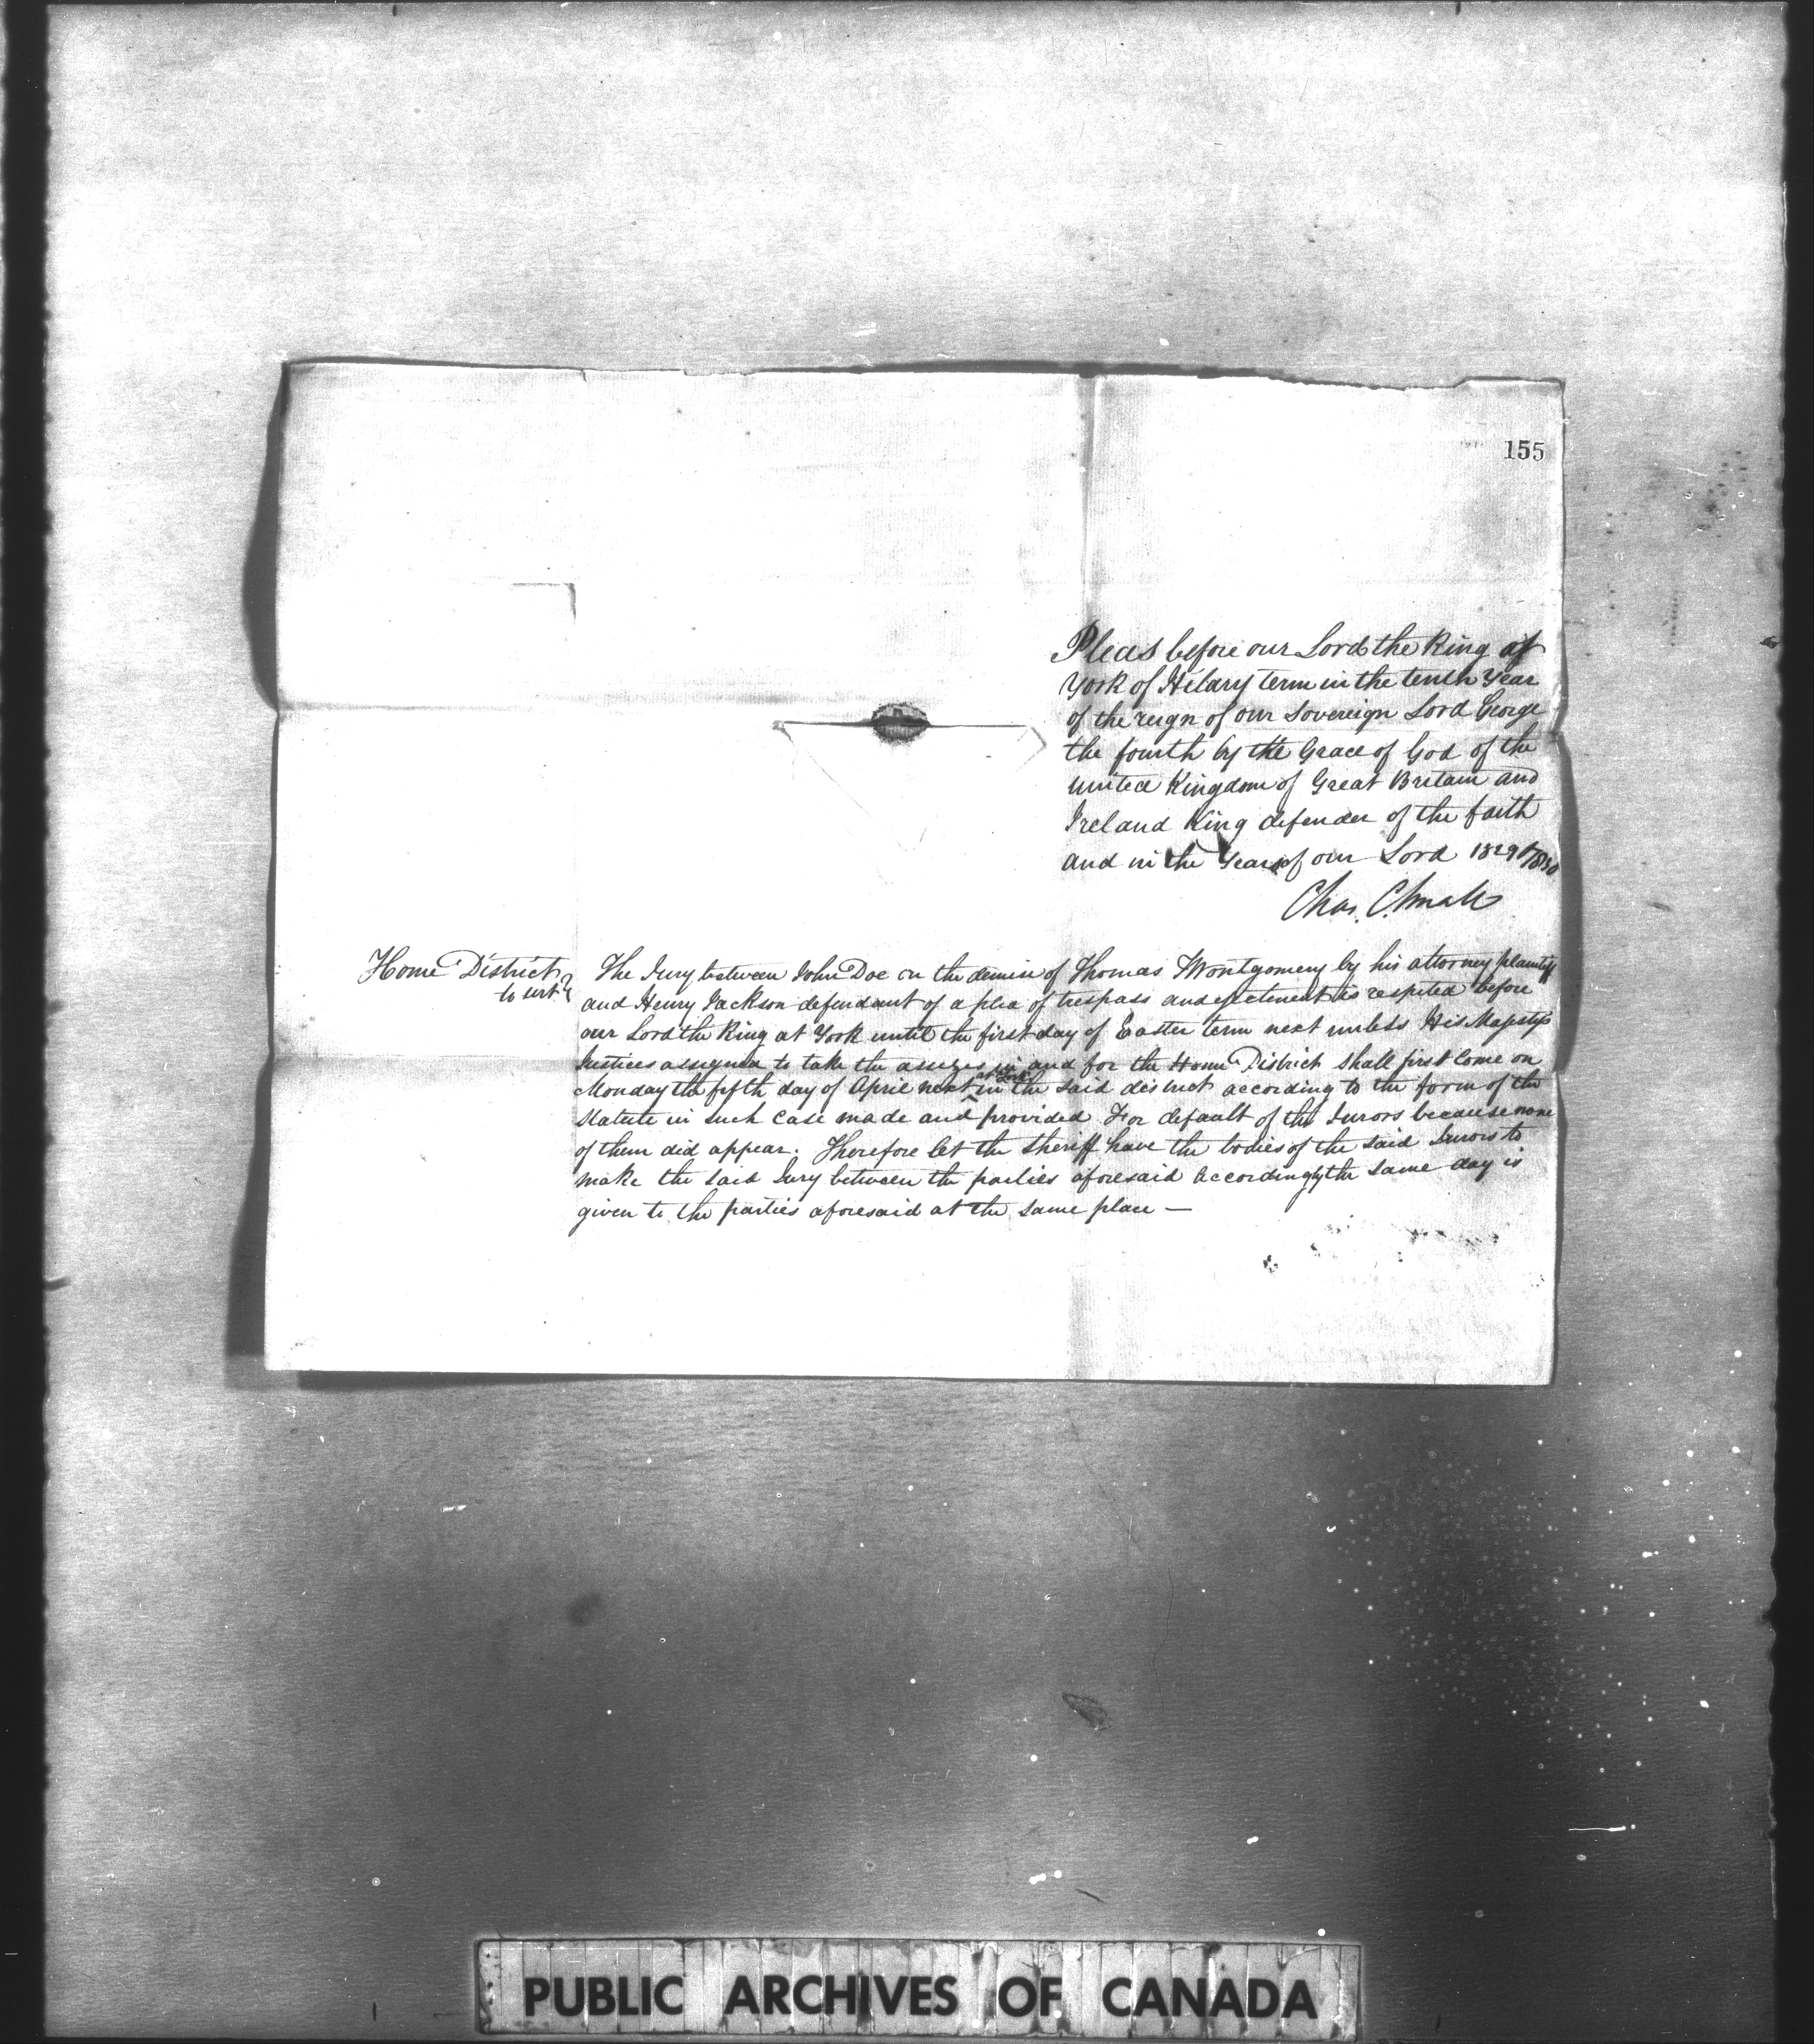 155
Pleas before our Lord the King at
York of Hilary term in the tenth Year
of the reign of our Sovereign Lord George
the fourth by the Grace of God of the
united Kingdom of Great Britain and
Ireland King defender of the faith
and in the Year of our Lord 1829/1830
Chas. C. Small
Home District
to wit
The Jury between John Doe on the demise of Thomas Montgomery by his attorney plaintiff
and Henry Jackson defendant of a plea of trespass and ejectment is respited before
our Lord the King at York until the first day of Easter term next unless His Majestys
Justices assigned to take the assizes in and for the Home District shall first come on
Monday the fifth day of April next at York in the said district according to the form of the
Statute in such case made and provided For default of the Jurors because none
of them did appear. Therefore let the Sheriff have the bodies of the said Jurors to
make the said Jury between the parties aforesaid accordingly the same day is
given to the parties aforesaid at the same place —
PUBLIC ARCHIVES OF CANADA